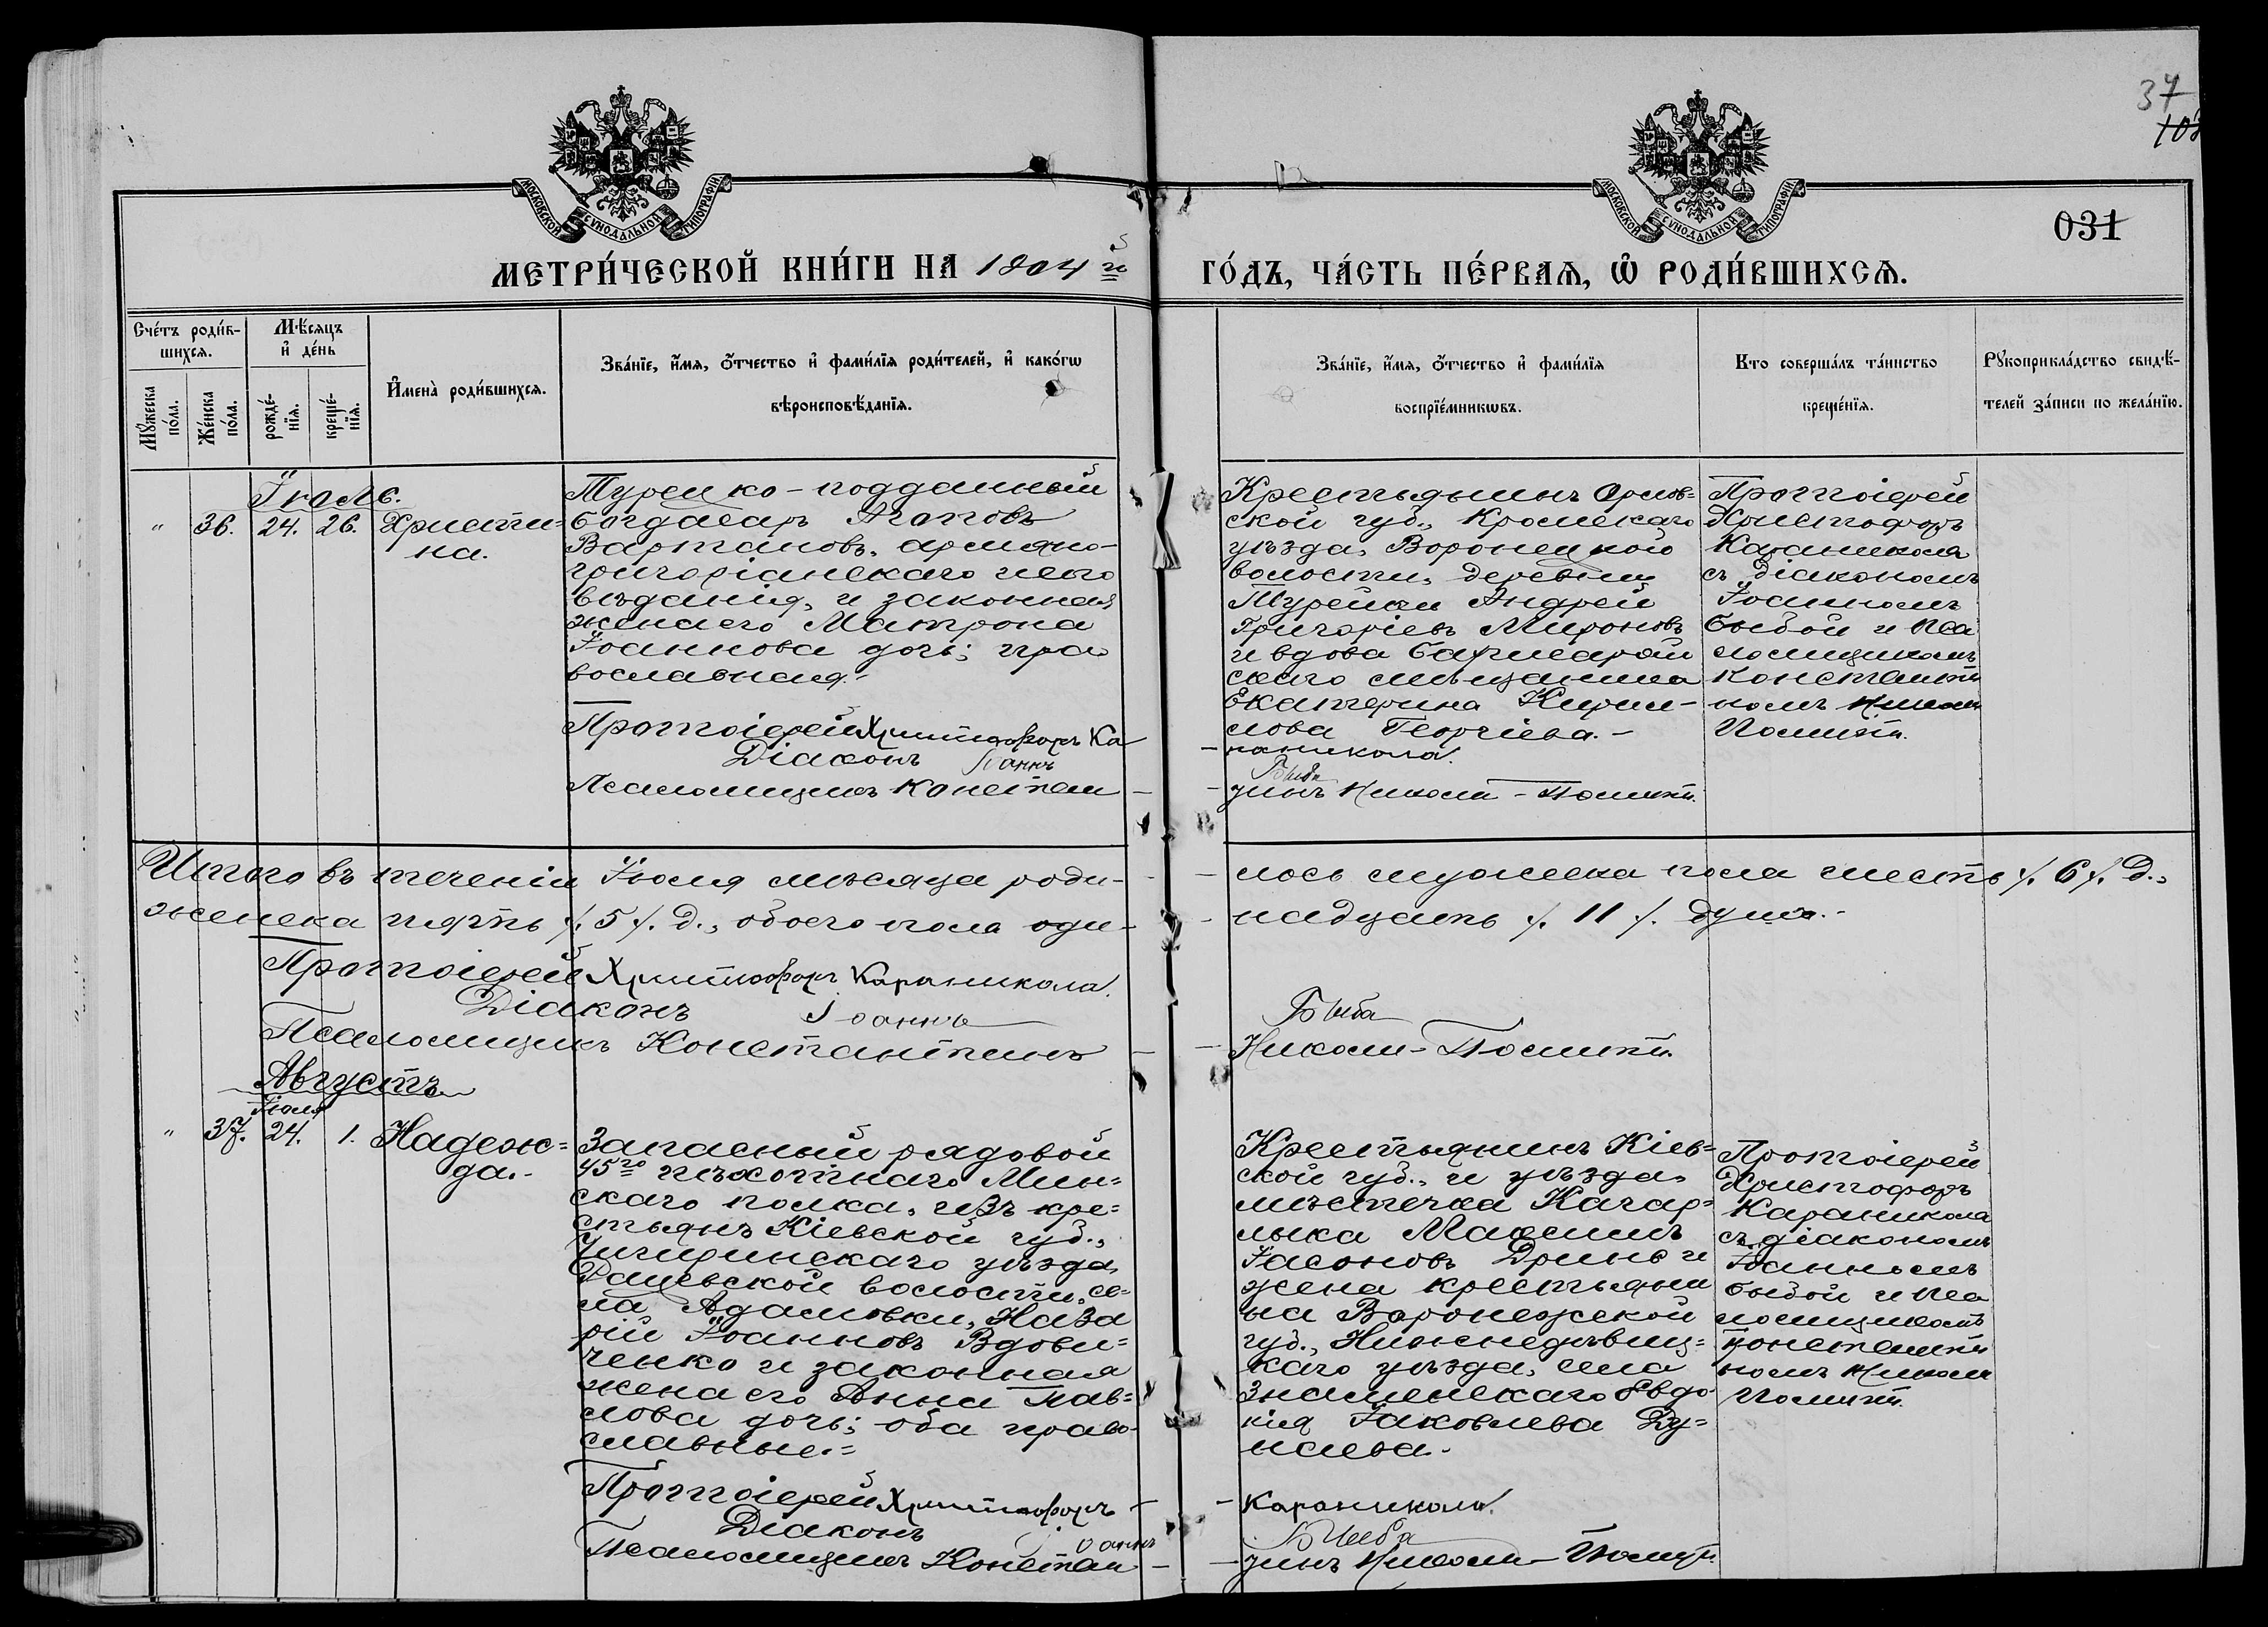 37
108
031
МОСКОВСКОЙ СѴНОДАЛЬНОЙ ТИПОГРАФІИ
МОСКОВСКОЙ СѴНОДАЛЬНОЙ ТИПОГРАФІИ
МЕТРИ́ЧЕСКОЙ КНИ́ГИ НА 1904 й ГО́ДЪ, ЧА́СТЬ ПЕ́РВАЯ, Ѡ РОДИ́ВШИХСЯ.
Сче́тъ роди́в-
шихся.
Мꙋ́жеска
по́ла.
Же́нска
по́ла.
Мѣ́сяцъ
и҆ де́нь
рожде́-
нїя.
креще́-
нїя.
И҆мена̀ роди́вшихся.
Зва́нїе, и҆́мя, ѻ҆́тчество и҆ фами́лїя роди́телей, и҆ како́гѡ
вѣроисповѣ́данїя.
Зва́нїе, и҆́мя, ѻ҆́тчество и҆ фами́лїя
воспрїе́мникѡвъ.
Кто соверша́лъ та́инство
креще́нїя.
Рꙋкоприкла́дство свидѣ́-
телей за́писи по жела́нїю.
Іюль.
" 36. 24. 26. Христи-
на.
Турецко-подданный
Богдасаръ Агоповъ
Вартановъ, армяно-
григоріанскаго испо
вѣданія, и законная
жена его Матрона
Іоаннова дочь; пра
вославная.-
Протоіерей Христофоръ Ка
Діаконъ Іоаннъ
Псаломщикъ Констан -
Крестьянинъ Орлов=
ской губ., Кромскаго
уѣзда, Воронецкой
волости, деревни
Турейки Андрей
Григоріевъ Мироновъ
и вдова Бахчисарай
скаго мѣщанина
Екатерина Кирил-
лова Георгіева.-
- раникола.
Быба
- тинъ Николи-Политти.
Протоіерей
Христофоръ
Караникола
съ діакономъ
Іоанномъ
Быбой и Пса
ломщикомъ
Константи
номъ Николи
Политти.
Итого въ теченіи Іюля мѣсяца роди- - лось мужеска пола шесть /. 6 /. д.,
женска пять /. 5 /. д., обоего пола оди- - надцать /. 11 /. душъ.-
Протоіерей Христофоръ Караникола.
Діаконъ Іоаннъ Быба
Псаломщикъ Константинъ - - Николи-Политти.
Августъ
Іюля
" 37. 24. 1. Надеж=
да.-
Запасный рядовой
45го пѣхотнаго Мин=
скаго полка, изъ кре=
стьянъ Кіевской губ.,
Чигиринскаго уѣзда,
волости, се=
ла Адамовки, Наза
рій Іоанновъ Вдови=
ченко и законная
жена его Анна Пав=
лова дочь; оба право-
славные.=
Протоіерей Христофоръ -
Діаконъ Іоаннъ
Псаломщикъ Констан -
Крестьянинъ Кіев=
ской губ., и уѣзда,
мѣстечка Кагар=
лыка Максимъ
Іасоновъ и
жена крестьяни
на Воронежской
губ., Нижнедѣвиц=
каго уѣзда, села
Знаменскаго Евдо
кія Іаковлева Ду=
наева.-
- Караникола.
Быба
- тинъ Николи-Политти.
Протоіерей
Христофоръ
Караникола
съ діакономъ
Іоанномъ
Быбой и Пса
ломщикомъ
Константи
номъ Николи
Политти.